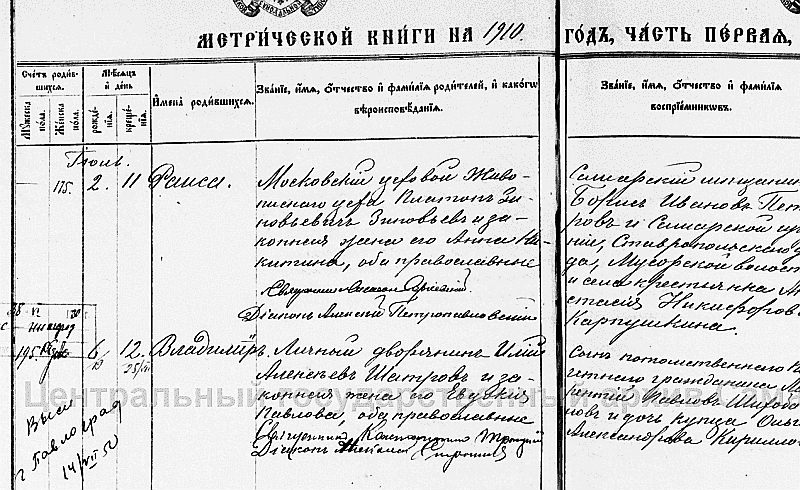 МЕТРИ́ЧЕСКОЙ КНИ́ГИ НА 1910.
ГО́ДЪ, ЧА́СТЬ ПЕ́РВАЯ,
Сче́тъ роди́в-
шихся.
Му́жеска
по́ла.
Же́нска
по́ла.
Мѣ́сяцъ
и́ де́нь
рожде́-
нія.
креще́-
нія.
И́мена роди́вшихся.
Зва́ніе, и́мя, о́тчество и́ фами́лія роди́телей, и́ како́гѡ
вѣроисповѣ́данія.
Зва́ніе, и́мя, о́тчество и́ фами́лія
воспріе́мниковъ.
Іюль.
175. 2. 11 Раиса.
Московскій цеховой Живо-
писнаго цеха Платонъ Зи-
новьевичъ Зиновьевъ и за-
конная жена его Анна Ни-
китина, оба православные
Священникъ
Діаконъ Алексій Петропавловскій
Самарскій мѣщанинъ
Борисъ Ивановъ Пет-
ровъ и Самарской губер-
ніи, Ставропольскаго уѣз-
да, Мусорской волости
и села крестьянка
Никифорова
Карпушкина.
195. 6 12. Владиміръ.
Личный дворянинъ
Алексѣевъ Шатровъ и за-
конная жена его Евдокія
Павлова, оба православные
Священникъ Константинъ Троицкій
Діаконъ Алексій
Сынъ потомственнаго
почетнаго гражданина
Павловъ
и дочь купца Ольга
Александрова
Выс.
г. Павлоград
14/VII 50
Центральный государственный архив Сама